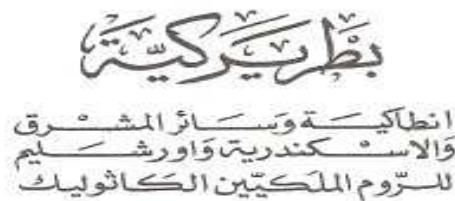 بطريركيّة
انطاكية وسائر المشرق
والاسكندرية واورشليم
للرّوم الملكيّين الكاثوليك